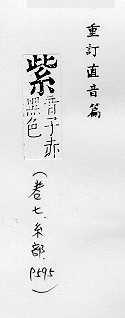 重訂直音篇
紫音子赤
黑色
(卷七.糸部.
P595)